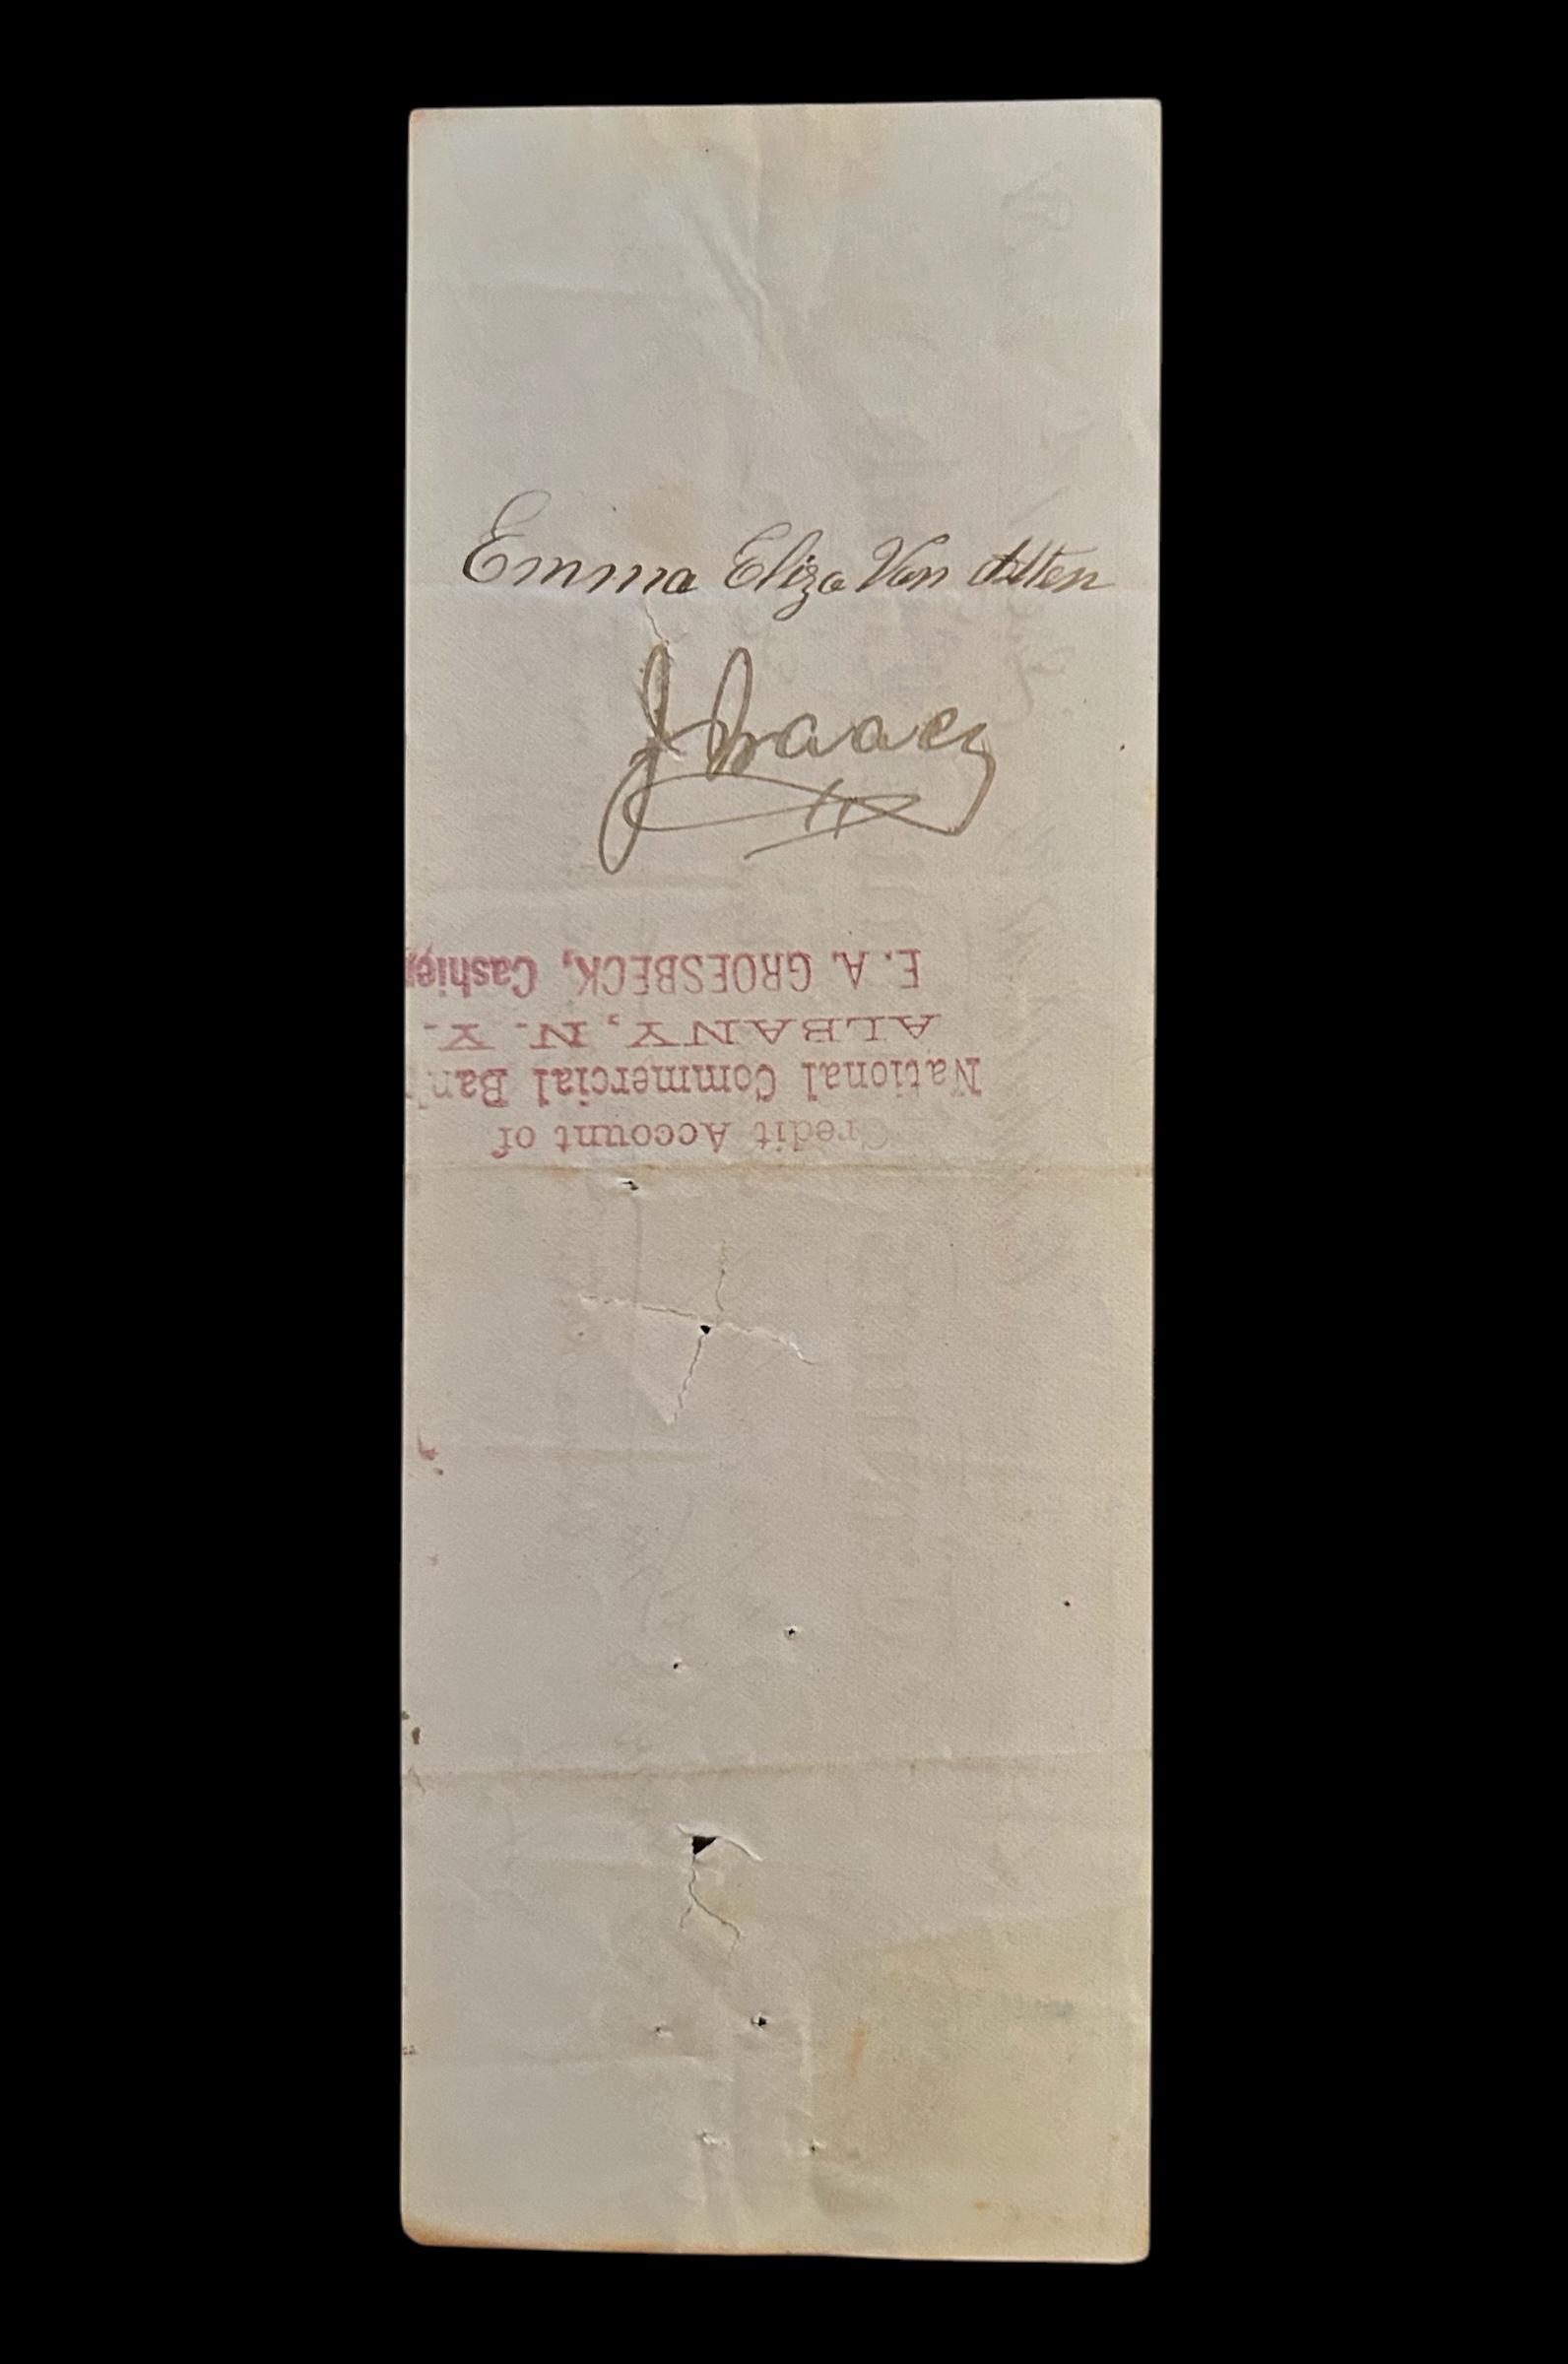 Emma Eliza Van Allen
J Isaacs
Credit Account of
National Commercial Ban
ALBANY, N. Y.
E. A. GROESBECK, Cashier